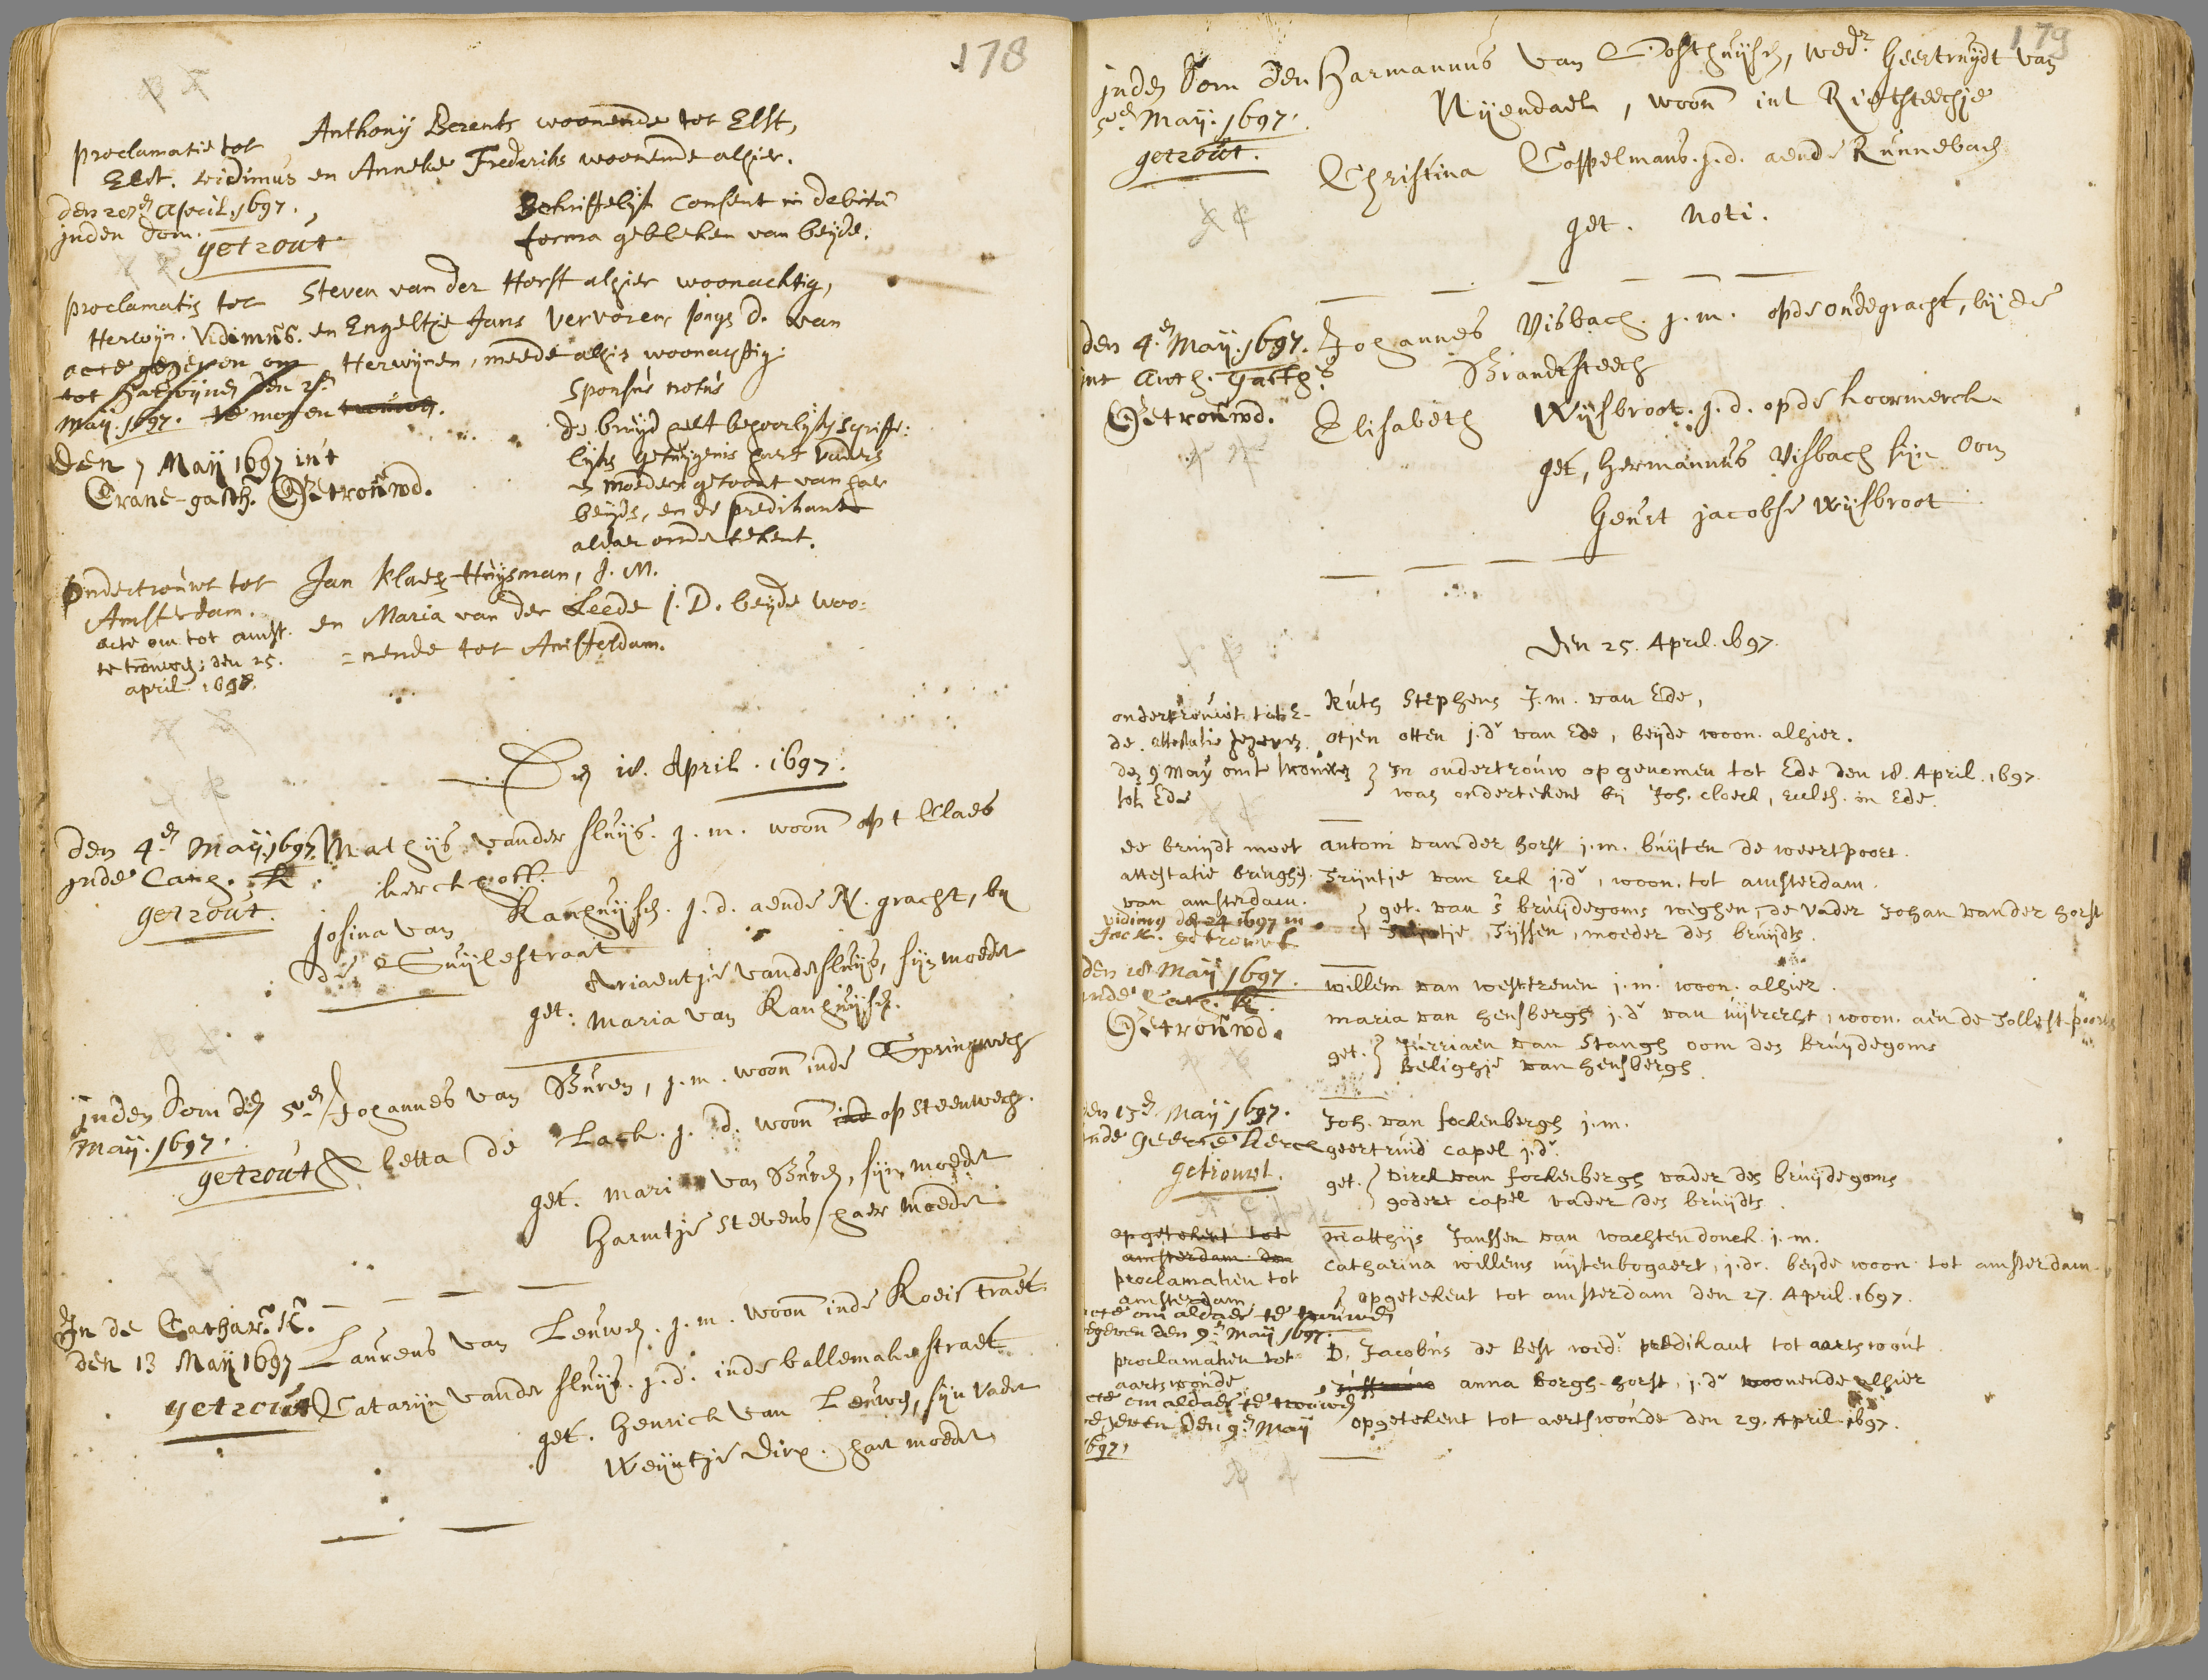 178
proclamatie tot
Elst. vidimus
den 20en April. 1697.
inden dom.
getrout
Anthonij Berents woonende tot Elst,
en Anneke Frederiks woonende alhier.
Schriftelijk Consent in debita
forma gebleken van beijde.
proclamatis tot
Herwijn. Vidimus.
acte gegeven om
tot Harwijnen den 2en
maij. 1697. te mogen trouwen.
Den 7 Maij 1697 in't
Crane-gasth. Getrouwd.
Steven van der Horst alhier woonachtig,
en Engeltje Jans Vervoren, jonge d. van
Herwijnen, meede alhier woonachtig.
Sponsus notus
de bruijd heeft behoorlijk schrifte:
lijke getuijgenis haers vaders
en moeders getoont van haer
beijde, en de predikant
aldaer ondertekent.
Ondertrouwt tot
Amsterdam.
acte om tot amst.
te trouwen; den 25.
april. 1698.
Jan Klaesz Huijsman, J. M.
en Maria van der Leede J. D. beijde woo:
=nende tot Amsterdam.
Den 18. April. 1697.
den 4en Maij. 1697.
inde Cath. K.
getrout.
Mathijs vander sluijs. j. m. woont opt Claes
kerckhoff.
Josina van Ranhuijsen. j. d. aende N. gracht, bij
de Suijlestraat
get: Ariaentje vander sluijs, sijn moeder
Maria van Ranhuijsen.
inden Dom den 5en
Maij. 1697.
getrout
Johannes van Buren, j. m. woont inde Springwech
Aletta de Lack. j. d. woont ind op steenwech.
get. Mari van Buren, sijn moeder
Harmtje Stevens haer moeder
In de Cathar. K.
den 13 Maij 1697
getrout
Laurens van Leuwen. j. m. woont inde Koeistraet
Catarijn vander sluijs. j. d. inde ballemakerstraet
get. Henrick van Leuwen, sijn vader
Weijntje Dirx. haer moeder
179
inden Dom den
5en Maij. 1697.
getrout.
Harmannus van Oosthuijsen, wedr. Geertruijdt van
Nijendael, woont int Rietsteechje
Christina Coppelmans. j. d. aende Runnebach
get. noti.
den 4en Maij. 1697.
int Cath. Gasth.
Getrouwd.
Johannes Visbach. j. m. op de oudegracht, bij de
Brandtsteech
Elisabeth Wijsbroot. j. d. op de koormerck
get, Hermannus Visbach sijn Oom
Geurt jacobse Wijsbroot
Den 25. April. 1697.
ondertrouwt tot E-
de. attestatie gegeven
den 9 Maij om te trouwen
tot Ede
Ruth Stephens J. m. van Ede,
otjen otten j. dr van Ede, beijde woon. alhier.
In ondertrouw opgenomen tot Ede den 18. April. 1697.
was ondertekent bij Joh. cloeck, eccles. in Ede.
de bruijdt moet
attestatie brenghen
van amsterdam.
vidimus den 24 1697 in
Jac K. getrouwt
antoni van der horst j. m. buijten de weertpoort.
Trijntje van Eck j. dr, woon. tot amsterdam.
get. van 's bruijdegoms weghen, de vader Johan van der horst
Tijssen, moeder des bruijdts.
den 18 Maij 1697.
inde Cath. K.
Getrouwd.
willem van westrenen j. m. woon. alhier.
maria van hensbergh j. dr van uijtrecht, woon. aen de Tollest-poort
get. Jurriaen van Stangh oom des bruijdegoms
Belighje van hensbergh.
den 13en Maij 1697.
inde Geerte Kerck
getrouwt.
Joh. van fockenbergh j. m.
geertruid capel j. dr.
get. Dirck van fockenbergh vader des bruijdegoms
godert capel vader des bruijdts.
opgetekent tot
amsterdam. den
proclamatien tot
amsterdam
acte om aldaer te trouwen
gegeven den 9en Maij 1697.
Matthijs Janssen van wachtendonck. j. m.
Catharina willems uijtenbogaert, j. dr. beijde woon. tot amsterdam.
opgetekent tot amsterdam den 27. April. 1697.
proclamatien tot
aartswoude
acte om aldaer te trouwen
gegeven den 9en Maij
1697.
D. Jacobus de Best wedr. predikant tot aartswout
Juffrouw anna Borgh-horst, j. dr woonende alhier
opgetekent tot aertswoude den 29. April. 1697.